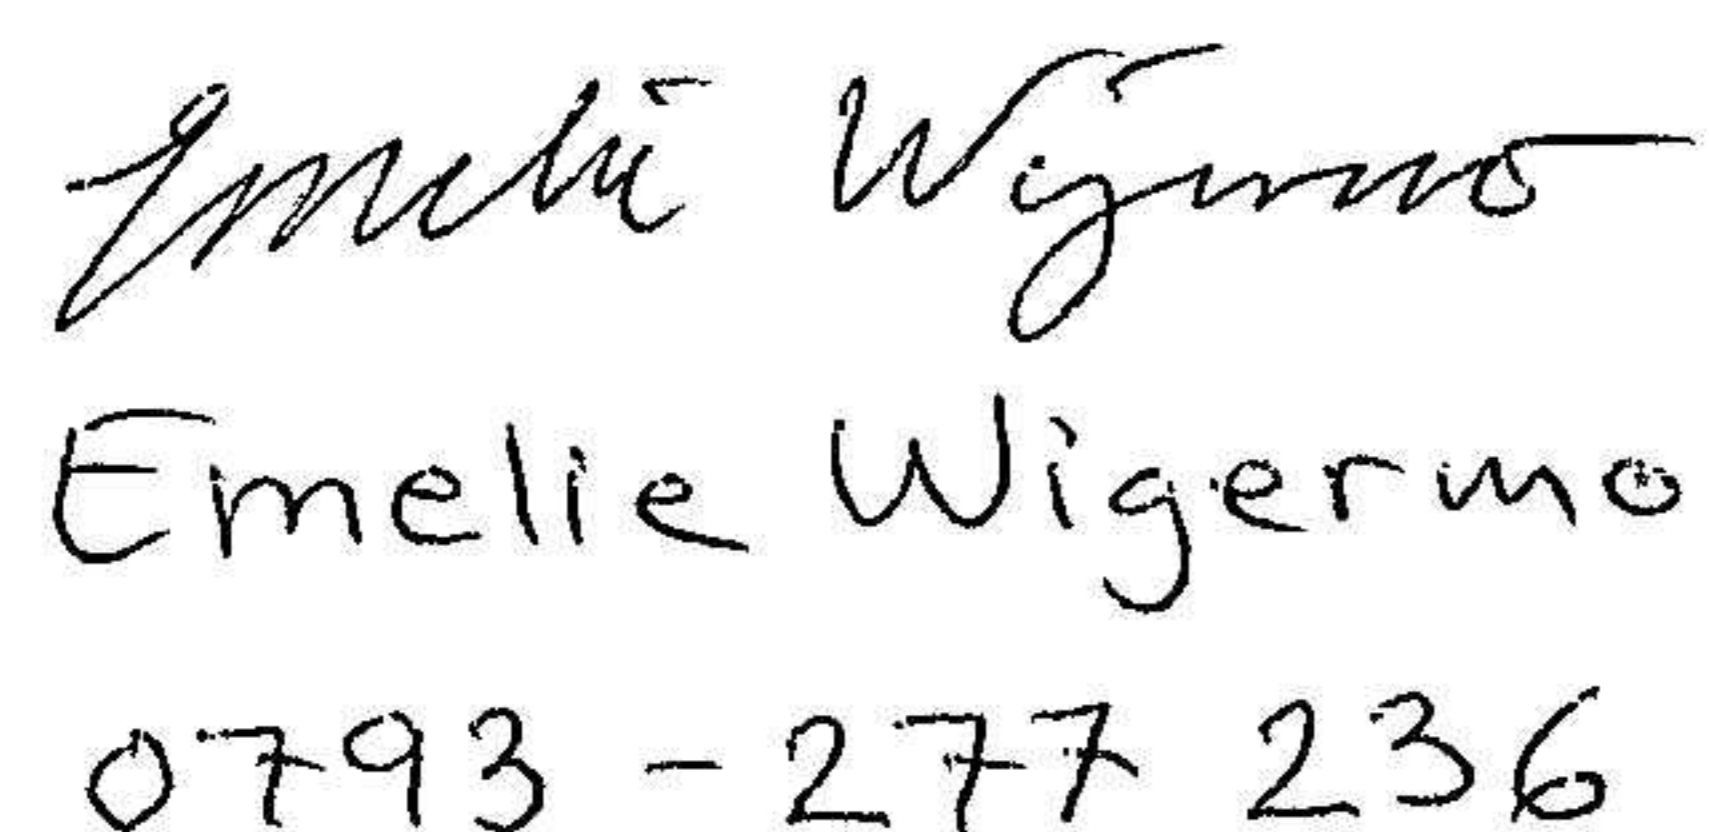 Emelie Wigermo
Emelie Wigermo
0793 - 277 236